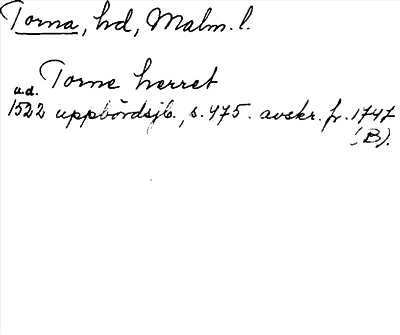 Torna, hd, Malm. l.
Torne herret
u.d.
1522 uppbördsjb., s. 475. avskr. fr. 1747
(B).